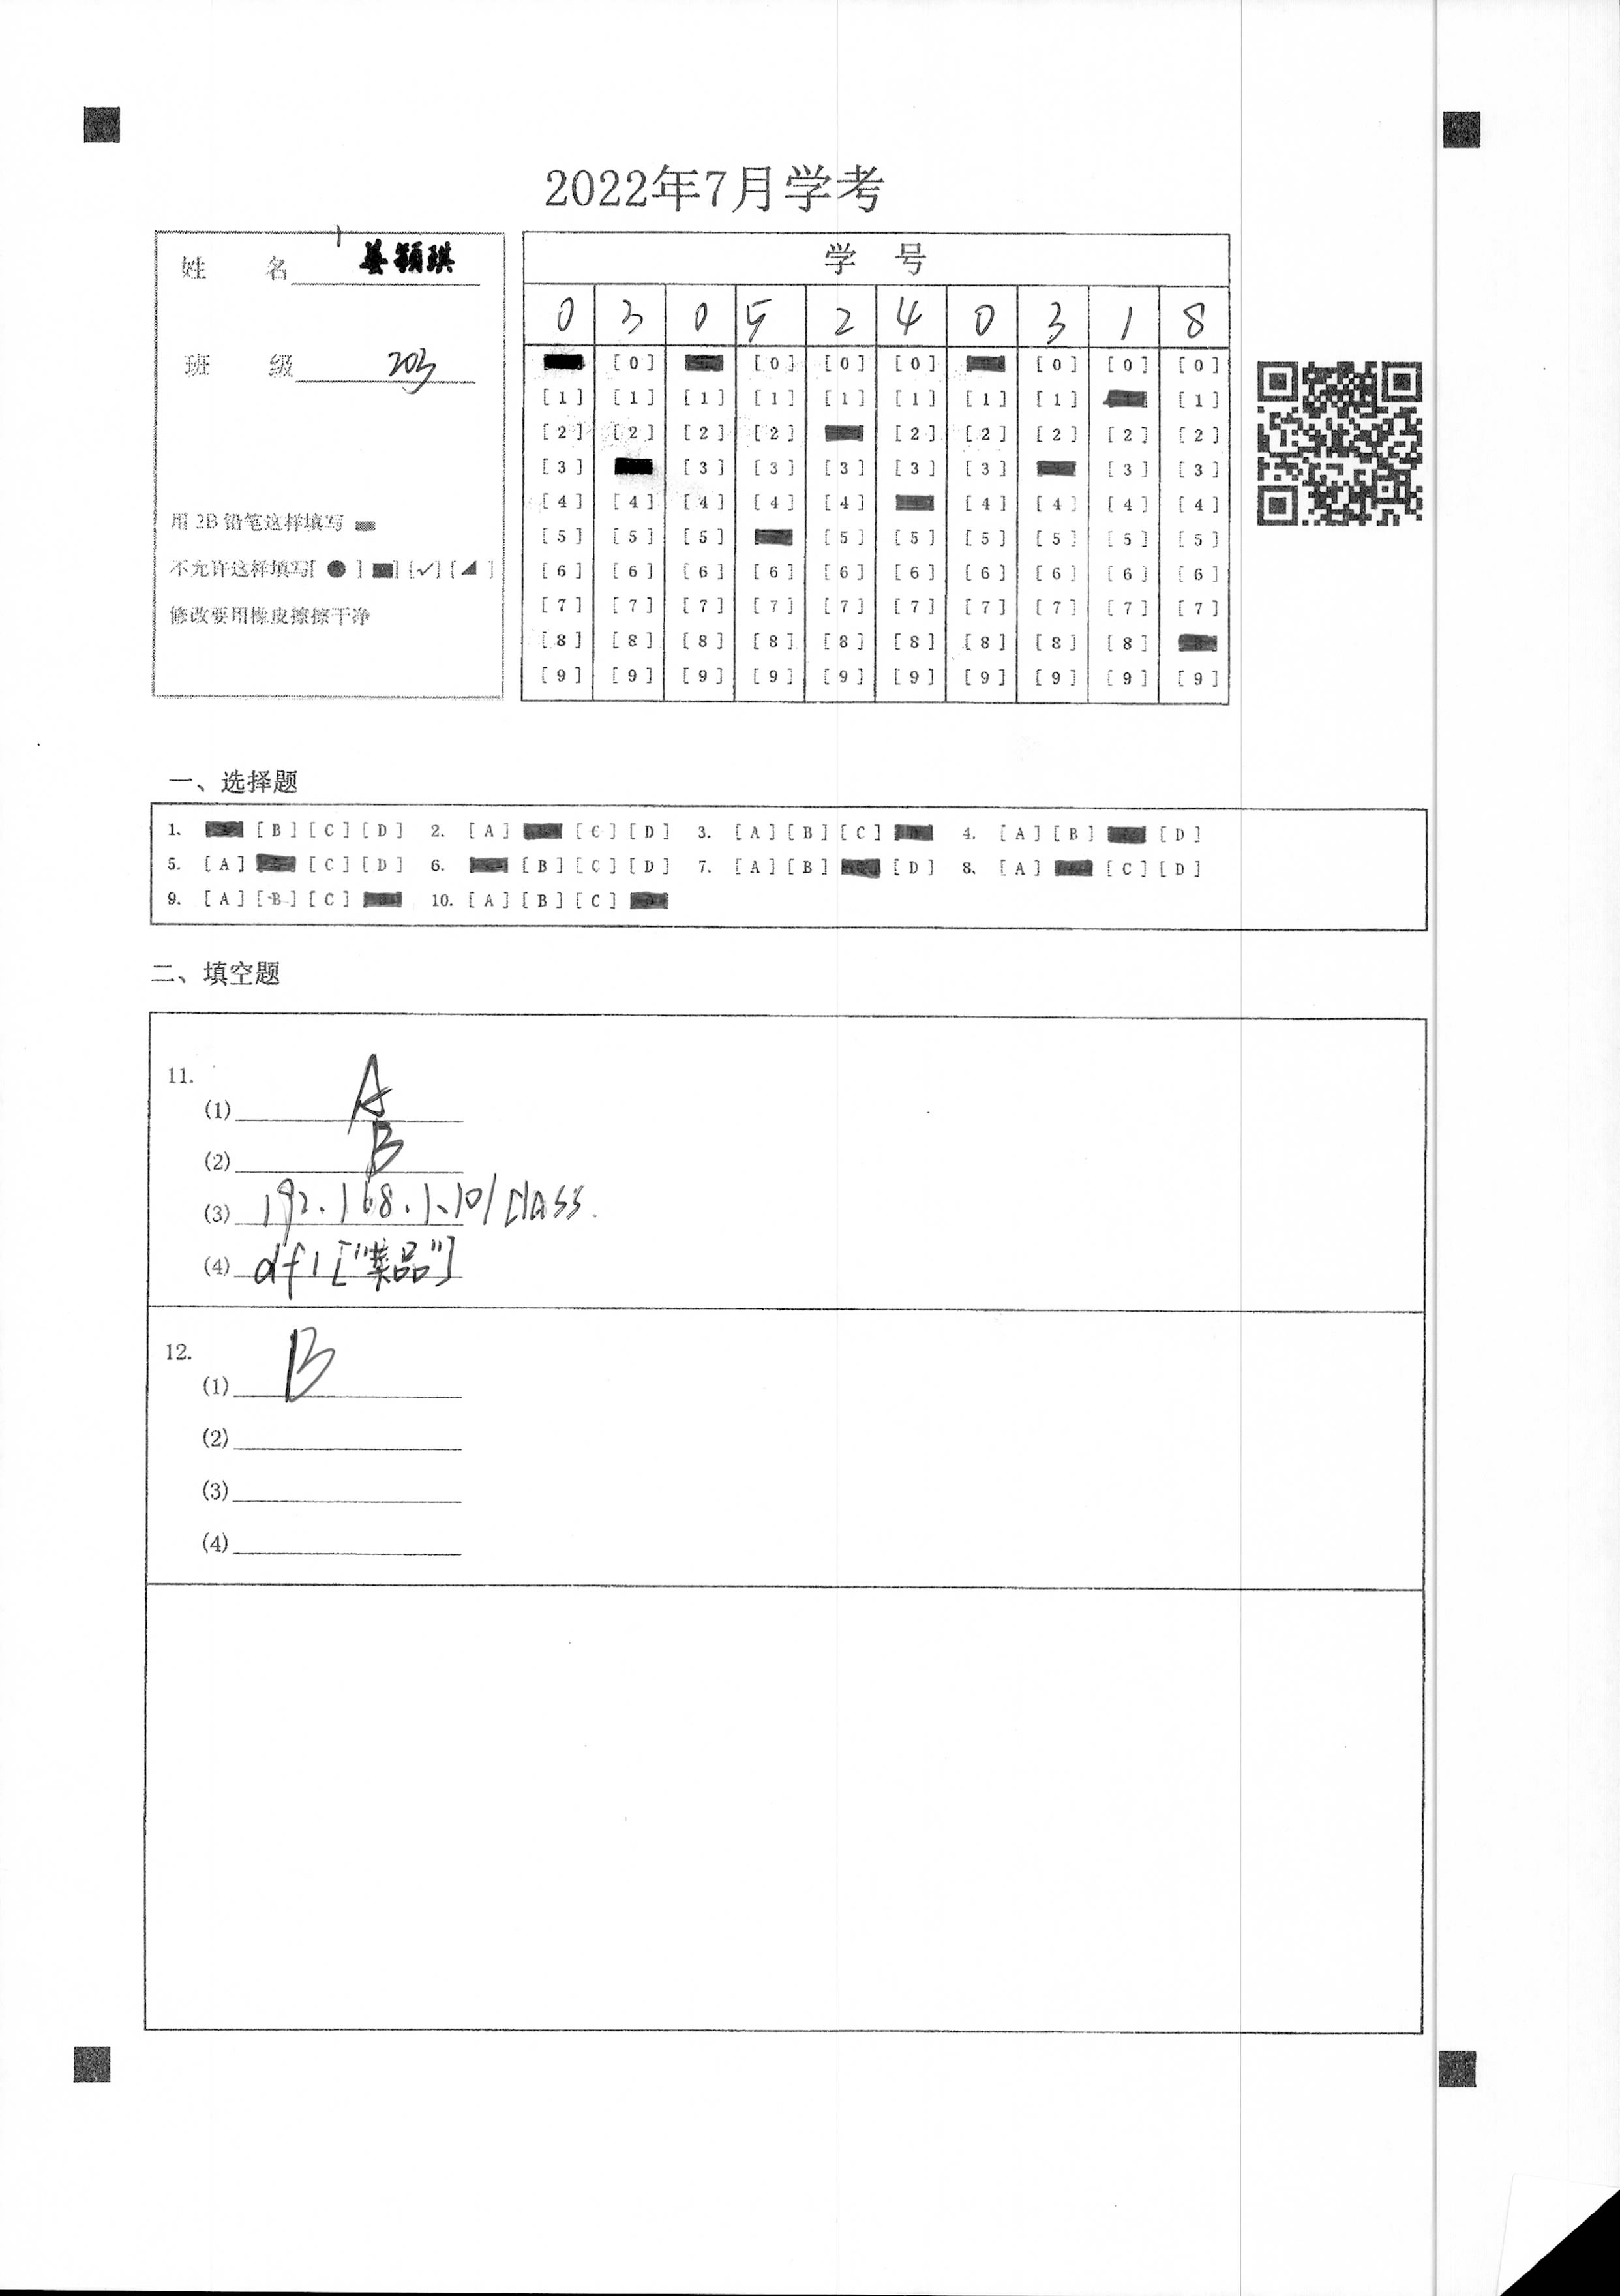 2022年7月学考
姓 名 姜颖琪
班 级 203
用 2B 铅笔这样填写
不允许这样填写[ ● ] [✓] [ ]
修改要用橡皮擦擦干净
学 号
0 3 0 5 2 4 0 3 1 8
[0] [0] [0] [0] [0] [0] [0]
[1] [1] [1] [1] [1] [1] [1] [1] [1]
[2] [2] [2] [2] [2] [2] [2] [2] [2]
[3] [3] [3] [3] [3] [3] [3] [3]
[4] [4] [4] [4] [4] [4] [4] [4] [4]
[5] [5] [5] [5] [5] [5] [5] [5] [5]
[6] [6] [6] [6] [6] [6] [6] [6] [6] [6]
[7] [7] [7] [7] [7] [7] [7] [7] [7] [7]
[8] [8] [8] [8] [8] [8] [8] [8] [8]
[9] [9] [9] [9] [9] [9] [9] [9] [9] [9]
一、选择题
1. [B] [C] [D] 2. [A] [C] [D] 3. [A] [B] [C] 4. [A] [B] [D]
5. [A] [C] [D] 6. [B] [C] [D] 7. [A] [B] [D] 8. [A] [C] [D]
9. [A] [B] [C] 10. [A] [B] [C]
二、填空题
11.
(1) A
(2) B
(3) 192.168.1.10/class.
(4) df1["菜品"]
12.
(1) B
(2)
(3)
(4)